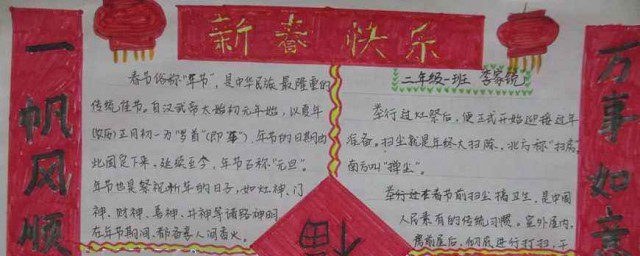 新春快乐
一帆风顺
万事如意
春节俗称“年节”,是中华民族最隆重的
传统佳节。自汉武帝太始初元年始,以夏年
(农历)正月初一为“岁首”(即“年”),年节的日期由
此固定下来,延续至今,年节古称“元旦”。
年节也是祭祝新年的日子,如灶神、门
神、财神、喜神、井神等诸路神明
在年节期间,都备享人间香火。
二年级一班 李家锐
举行过灶祭后,便正式开始迎接过年
准备。扫尘就是年终大扫除,北方称“扫房”
南方叫“掸尘”。
举行过在春节前扫尘搞卫生,是中国
人民素有的传统习惯。室外屋内,
房前屋后,彻底进行打扫,于
福